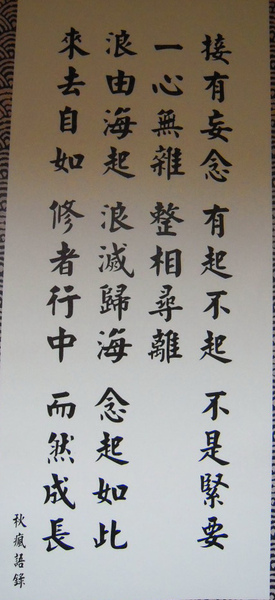 接有妄念 有起不起 不是緊要
一心無雜 整相尋離
浪由海起 浪滅歸海 念起如此
來去自如 修者行中 而然成長
秋瘋語錄